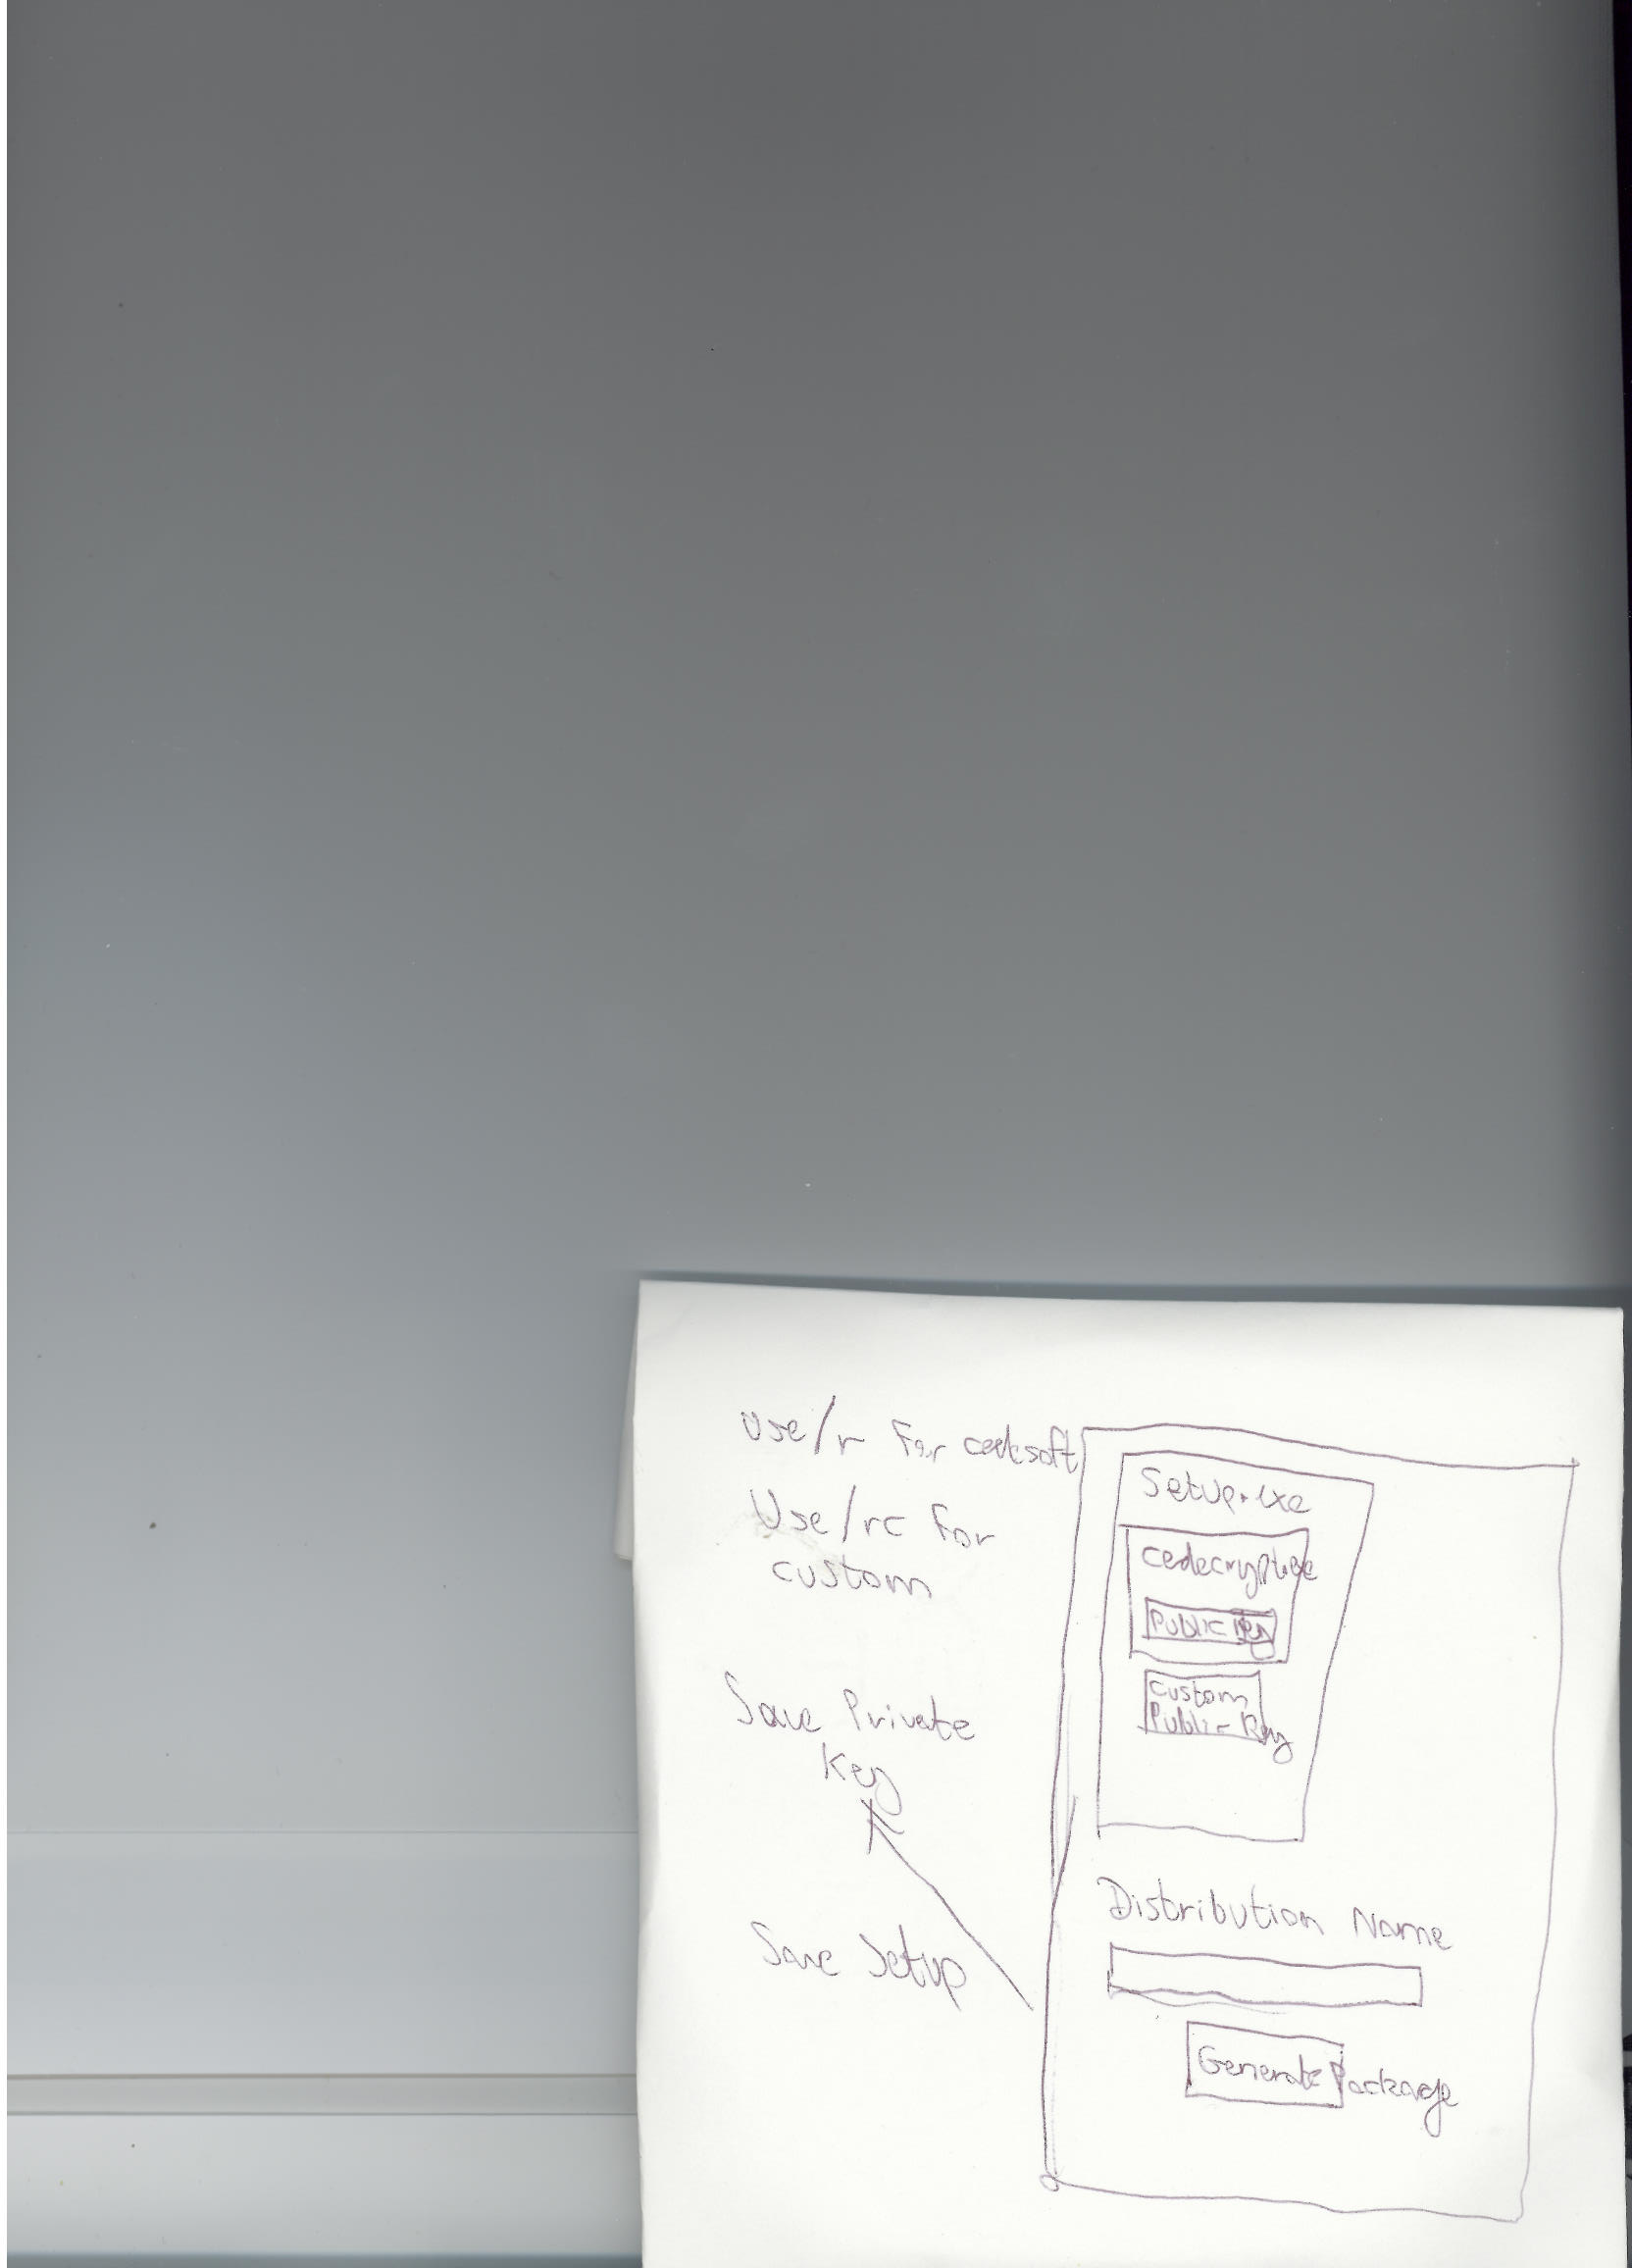 Use/r for cedesoft
Use/rc for
custom
Save Private
Key
Save Setup
Setup.exe
cedecrypt.exe
Public Key
Custom
Public Key
Distribution Name
Generate Package